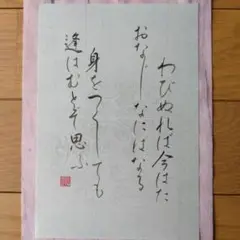 わびぬれば今はた
おなじなにはなる
身をつくしても
逢はむとぞ思ふ